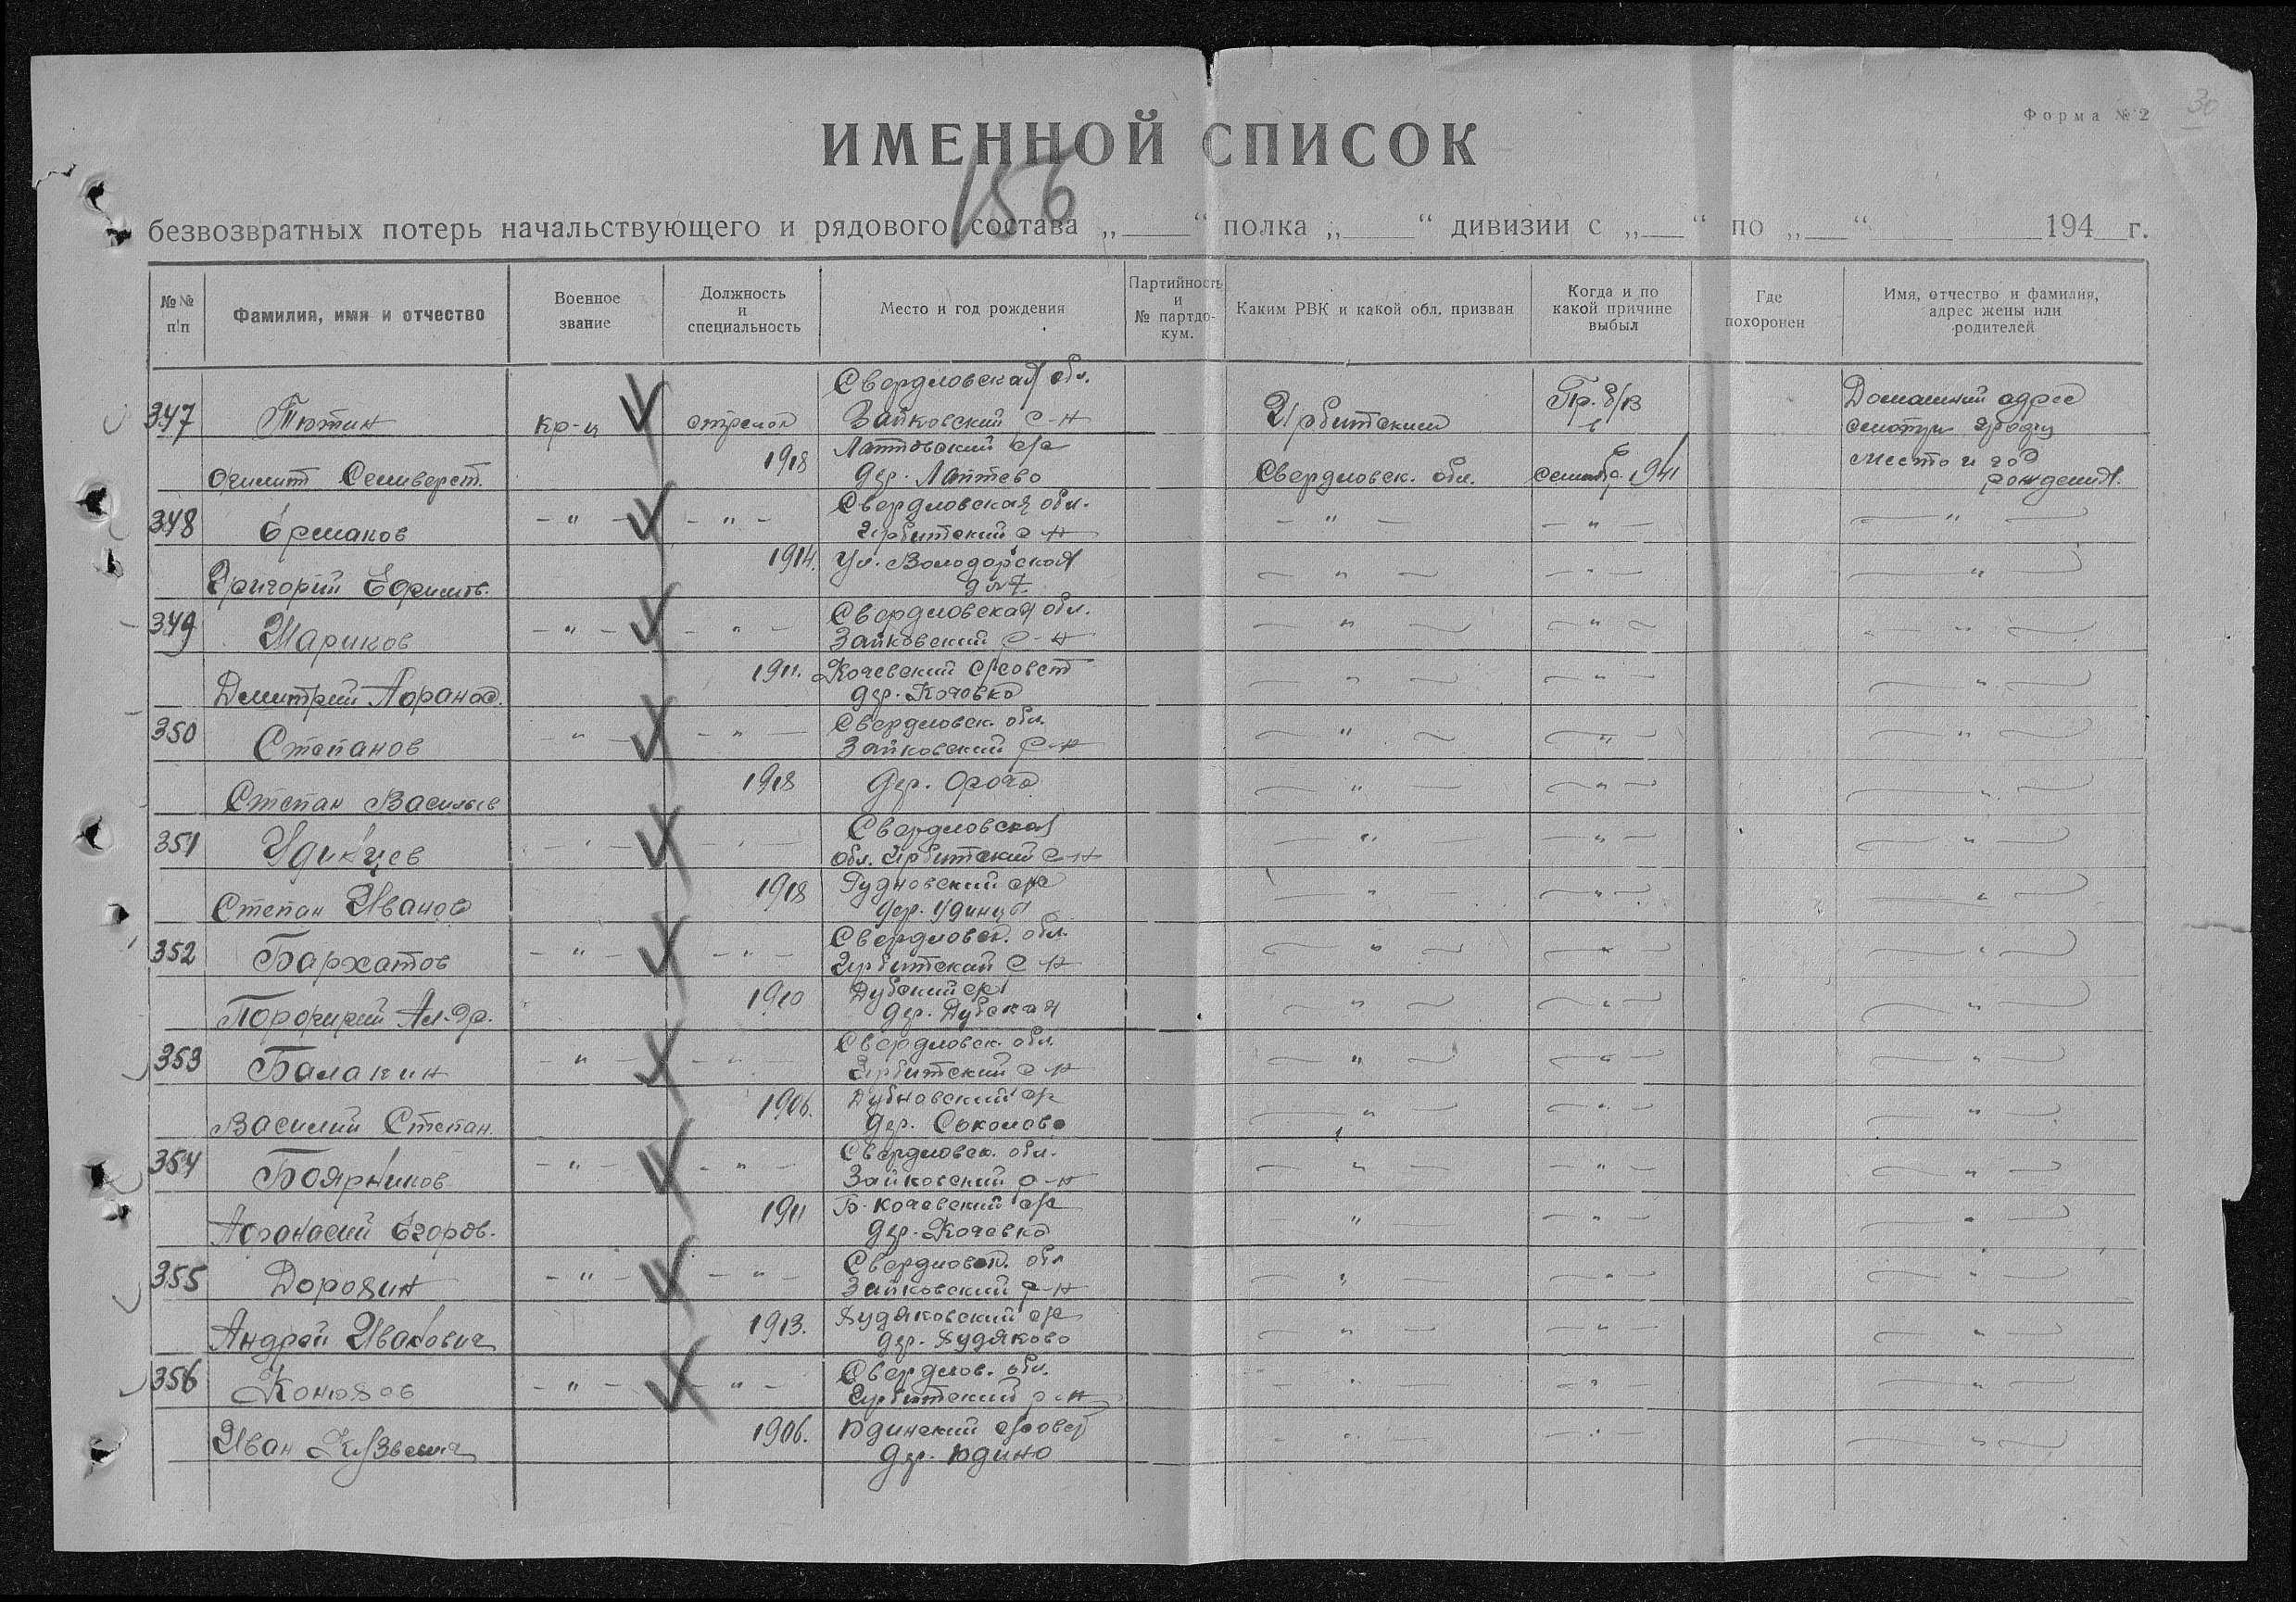 30
Форма № 2
ИМЕННОЙ СПИСОК
156
безвозвратных потерь начальствующего и рядового состава „ “ полка „ “ дивизии с „ “ по „ “ 194 г.
№№ п/п | Фамилия, имя и отчество | Военное звание | Должность и специальность | Место и год рождения | Партийность и № партдокум. | Каким РВК и какой обл. призван | Когда и по какой причине выбыл | Где похоронен | Имя, отчество и фамилия, адрес жены или родителей
Свердловская обл.
347 Тютин кр-ц стрелок Зайковский р-н Ирбитским Пр. б/в Домашний адрес
смотри графу
1918 Лаптевский с/с
Семиверст. дер. Лаптево Свердловск. обл. в сентябр. 1941 место и год рождения.
Свердловская обл.
348 Ермаков - " - - " - Ирбитский р-н - " - - " - - " -
1914. ул. Володарская
Григорий Ефимов. д №7 - " - - " - - " -
Свердловская обл.
349 Шариков - " - - " - Зайковский р-н - " - - " - - " -
1911. Кочевский с/совет
Дмитрий Афанас. дер. Кочевка - " - - " - - " -
Свердловск. обл.
350 Степанов - " - - " - Зайковский р-н - " - - " - - " -
Степан Васильев 1918 дер. - " - - " - - " -
Свердловская
351 Удинцев - " - - " - обл. Ирбитский р-н - " - - " - - " -
1918 с/с
Степан Иванов дер. Удинцы - " - - " - - " -
Свердловск. обл.
352 Бархатов - " - - " - Ирбитский р-н - " - - " - - " -
1910 Дубский с/с
Порфирий Ал-др. дер. Дубская - " - - " - - " -
Свердловск. обл.
353 Балакин - " - - " - Ирбитский р-н - " - - " - - " -
1906. с/с
Василий Степан. дер. Соколово - " - - " - - " -
Свердловск. обл.
354 Боярников - " - - " - Зайковский р-н - " - - " - - " -
1911 Б-Кочевский с/с
Афанасий Егоров. дер. Кочевка - " - - " - - " -
Свердловск. обл
355 Дорохин - " - - " - Зайковский р-н - " - - " - - " -
1913. Худяковский с/с
Андрей Иванович дер. Худяково - " - - " - - " -
Свердлов. обл.
356 - " - - " - Ирбитский р-н - " - - " - - " -
1906. Юдинский с/совет
Иван Кузьмич дер. Юдино - " - - " - - " -